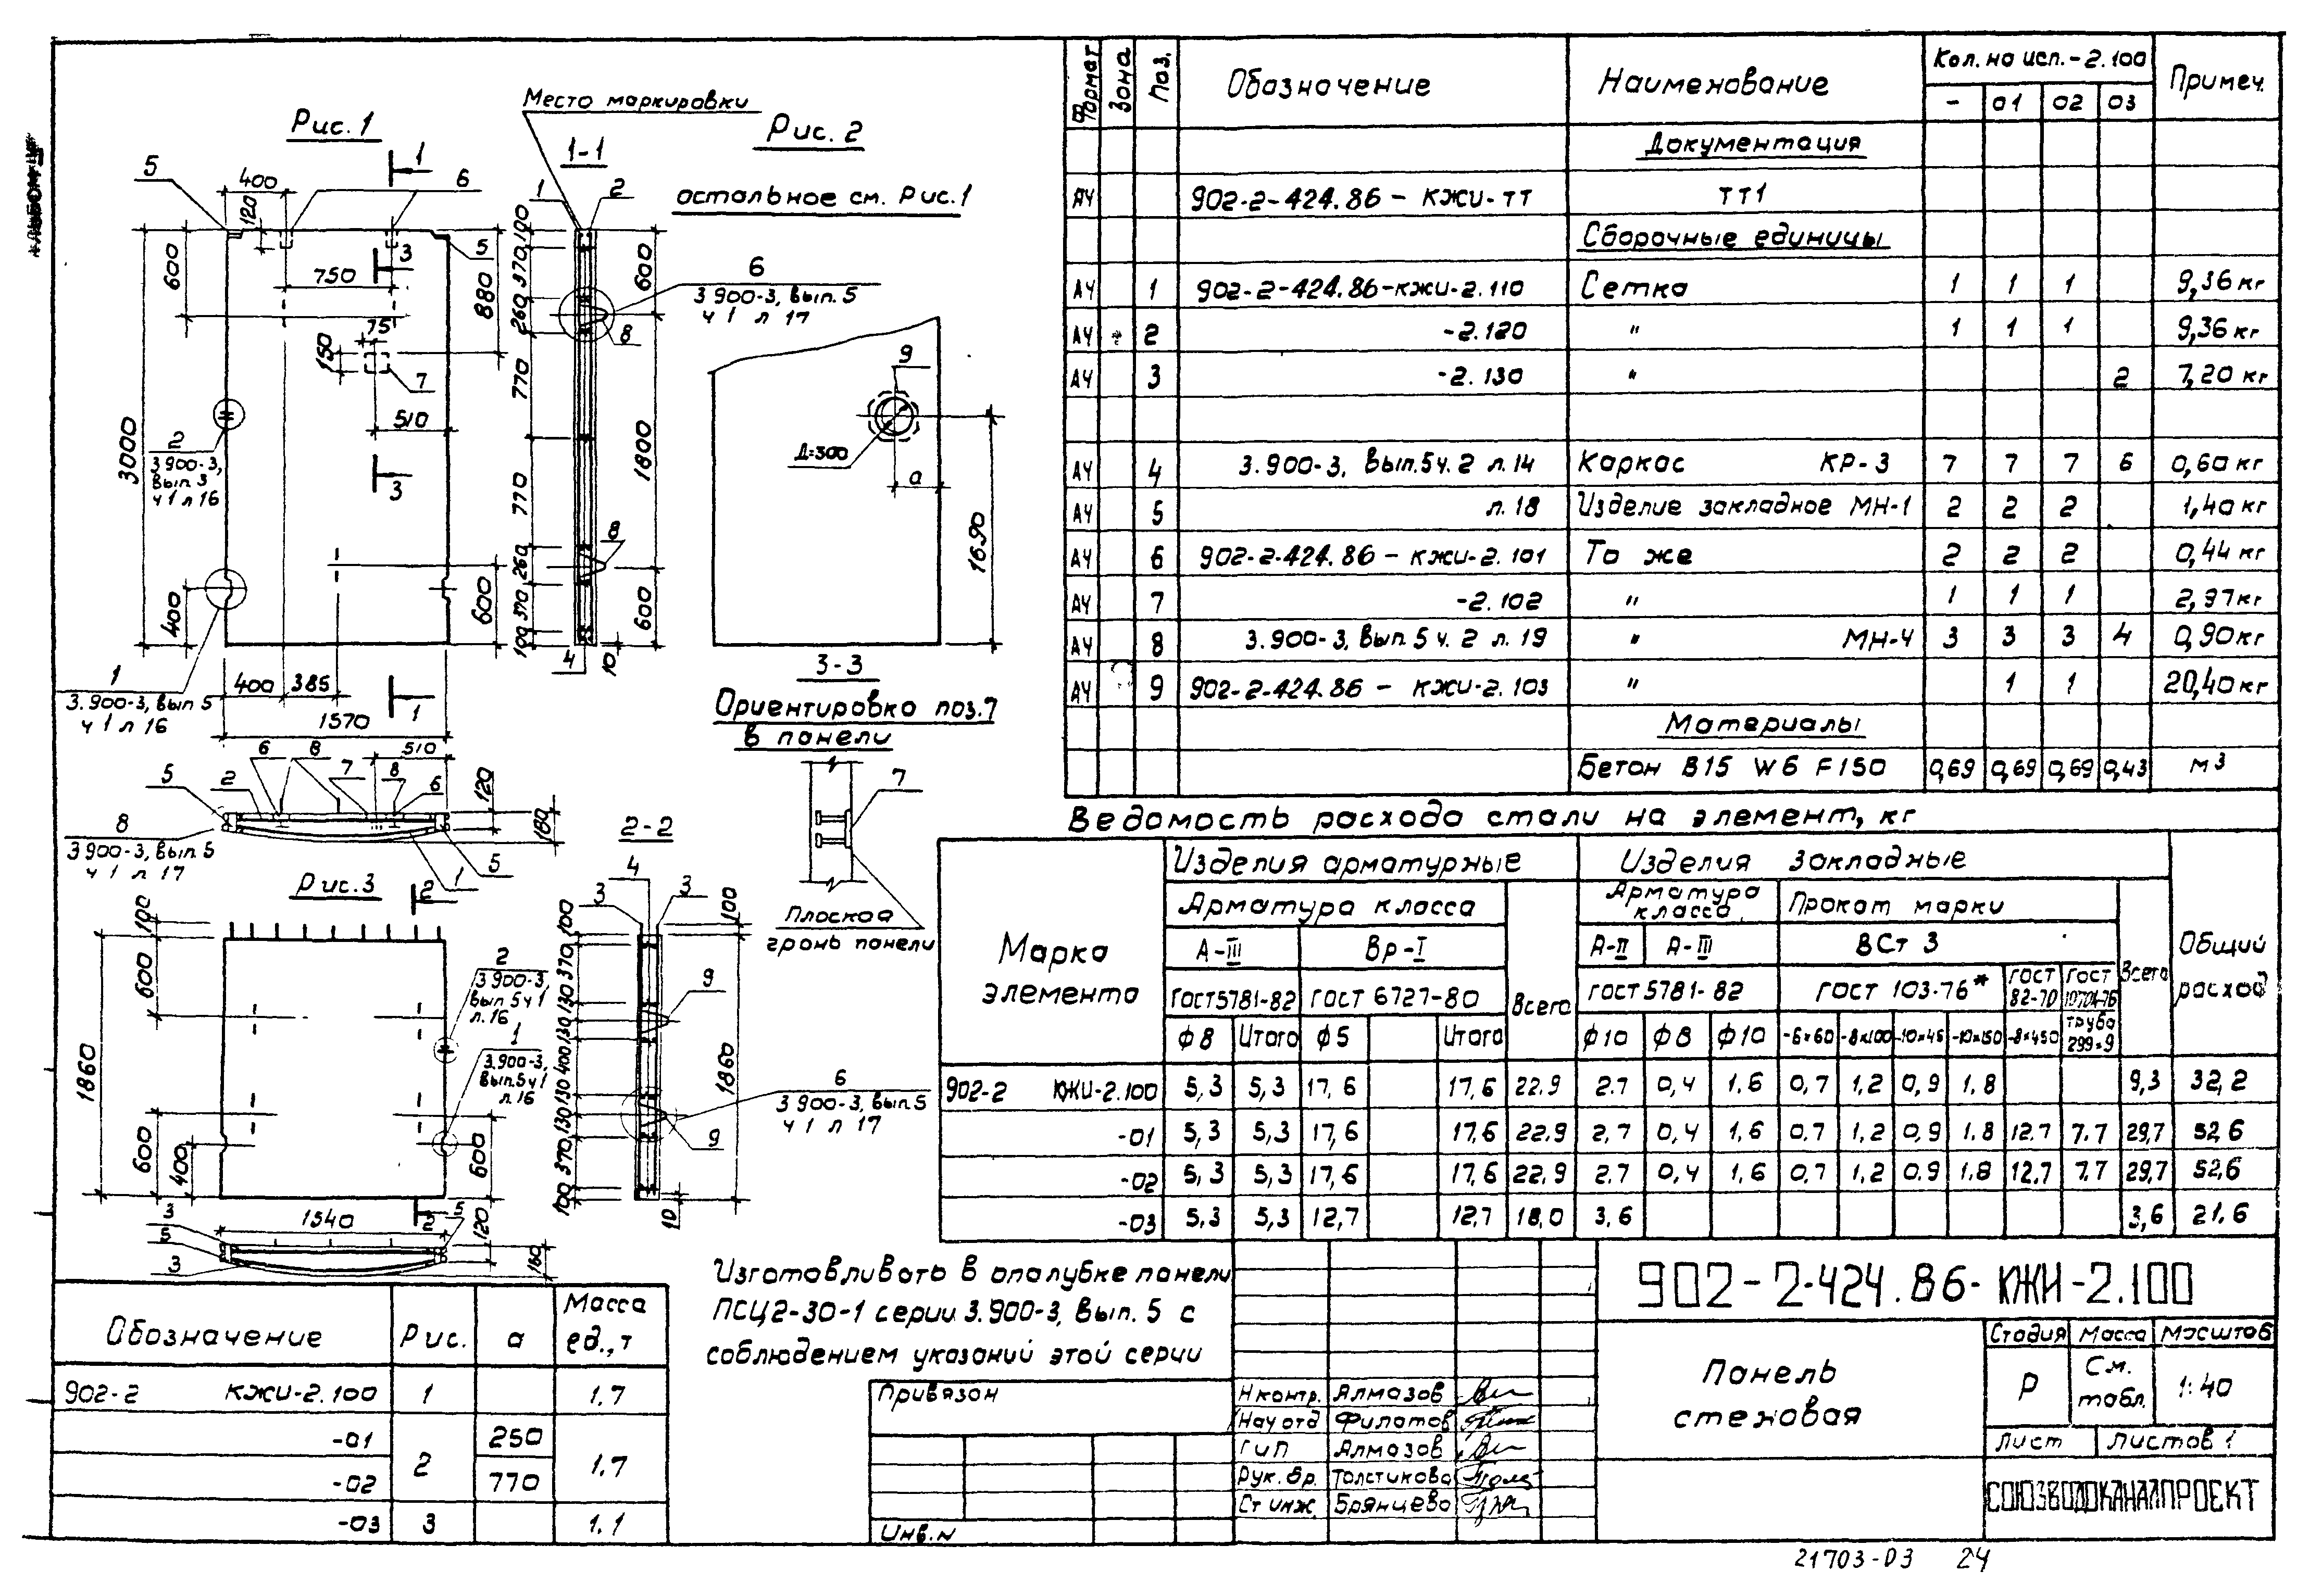 Рис. 1
5
400
120
6
1
600
3
5
750
880
75
150
7
510
3000
2
3.900-3,
вып 3
ч 1 л 16
3
400
600
1
3.900-3, вып 5
ч 1 л 16
400 385
1
1570
Место маркировки
1-1
1
2
100
370
260
770
770
260
370
100
600
1800
600
8
8
4
10
6
3.900-3, вып. 5
ч 1 л 17
Рис. 2
остальное см. Рис. 1
9
Д=300
а
1690
3-3
Ориентировка поз. 7
в панели
7
Плоская
грань панели
6 8
510
5
2
7
8
6
120
180
8
3.900-3, вып. 5
ч 1 л 17
1
5
Рис. 3
2
100
600
1860
600
400
600
2
3.900-3,
вып 5 ч 1
л. 16
1
3.900-3,
вып. 5 ч 1
л 16
2
3
5
1540
5
120
180
3
2-2
4
3
3
100
100
370
130
130
400
130
130
370
100
1860
10
9
6
3.900-3, вып. 5
ч 1 л 17
9
Формат Зона Поз. Обозначение Наименование Кол. на исп. - 2.100 Примеч.
- 01 02 03
Документация
А4 902-2-424.86 - КЖИ-ТТ ТТ1
Сборочные единицы
А4 1 902-2-424.86-КЖИ-2.110 Сетка 1 1 1 9,36 кг
А4 2 -2.120 " 1 1 1 9,36 кг
А4 3 -2.130 " 2 7,20 кг
А4 4 3.900-3, Вып. 5 ч. 2 л. 14 Каркас КР-3 7 7 7 6 0,60 кг
А4 5 л. 18 Изделие закладное МН-1 2 2 2 1,40 кг
А4 6 902-2-424.86 - КЖИ-2.101 То же 2 2 2 0,44 кг
А4 7 -2.102 " 1 1 1 2,97 кг
А4 8 3.900-3, Вып. 5 ч. 2 л. 19 " МН-4 3 3 3 4 0,90 кг
А4 9 902-2-424.86 - КЖИ-2.103 " 1 1 20,40 кг
Материалы
Бетон В15 W6 F150 0,69 0,69 0,69 0,43 м3
Ведомость расхода стали на элемент, кг
Марка элемента Изделия арматурные Изделия закладные Общий расход
Арматура класса Всего Арматура класса Прокат марки Всего
А-III Вр-I А-II А-III ВСт 3
ГОСТ 5781-82 ГОСТ 6727-80 ГОСТ 5781-82 ГОСТ 103-76* ГОСТ 82-70 ГОСТ 10704-76
Ф8 Итого Ф5 Итого Ф10 Ф8 Ф10 -6×60 -8×100 -10×45 -10×150 -8×450 труба 299×9
902-2 КЖИ-2.100 5,3 5,3 17,6 17,6 22.9 2.7 0,4 1,6 0,7 1,2 0,9 1,8 9,3 32,2
-01 5,3 5,3 17,6 17,6 22.9 2,7 0,4 1,6 0,7 1,2 0,9 1.8 12.7 7.7 29,7 52,6
-02 5,3 5,3 17,6 17,6 22,9 2.7 0,4 1,6 0,7 1,2 0.9 1.8 12,7 7.7 29,7 52,6
-03 5,3 5,3 12,7 12,7 18,0 3,6 3,6 21.6
Обозначение Рис. а Масса ед., т
902-2 КЖИ-2.100 1 1.7
-01 2 250 1.7
-02 770
-03 3 1.1
Изготавливать в опалубке панели
ПСЦ2-30-1 серии 3.900-3, Вып. 5 с
соблюдением указаний этой серии
Привязан
Инв. N
Н контр. Алмазов
Нач отд Филатов
ГИП Алмазов
Рук. бр. Толстикова
Ст инж. Брянцева
902-2-424.86-КЖИ-2.100
Панель
стеновая
Стадия Масса Масштаб
Р См. табл. 1:40
Лист Листов 1
СОЮЗВОДОКАНАЛПРОЕКТ
21703-03 24